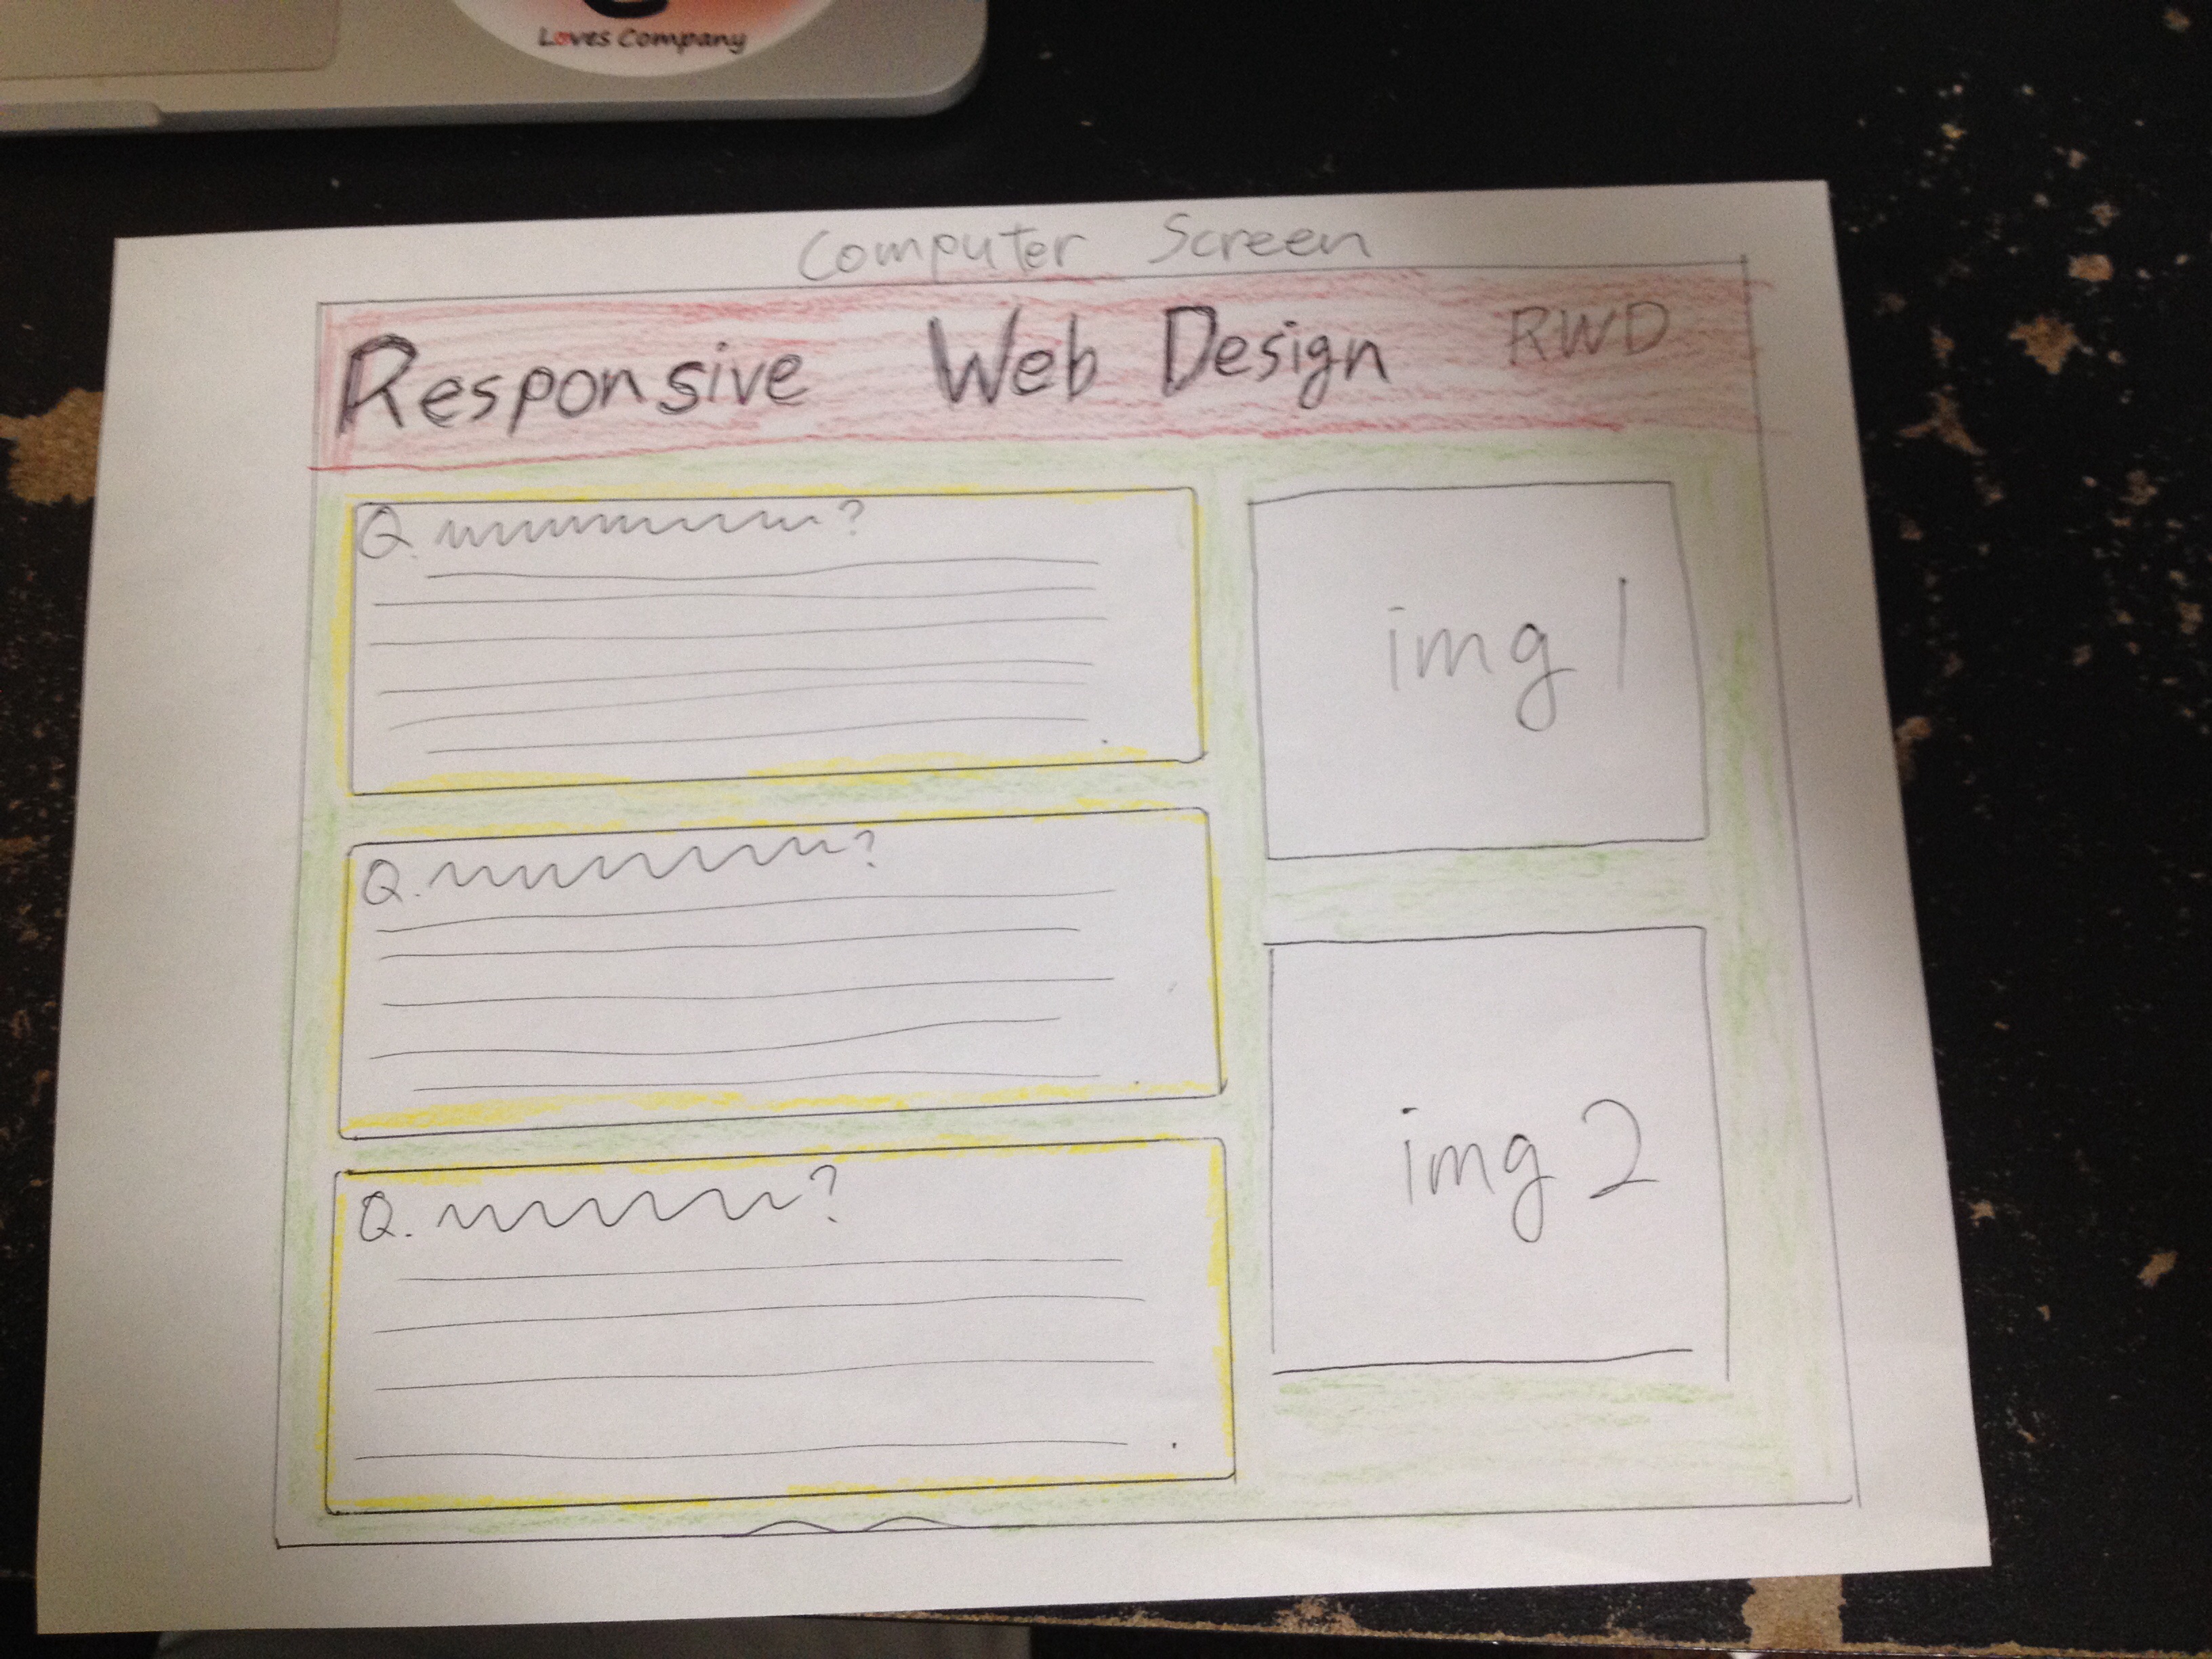 Loves Company
Computer Screen
Responsive Web Design RWD
Q. ?
img 1
Q. ?
img 2
Q. ?